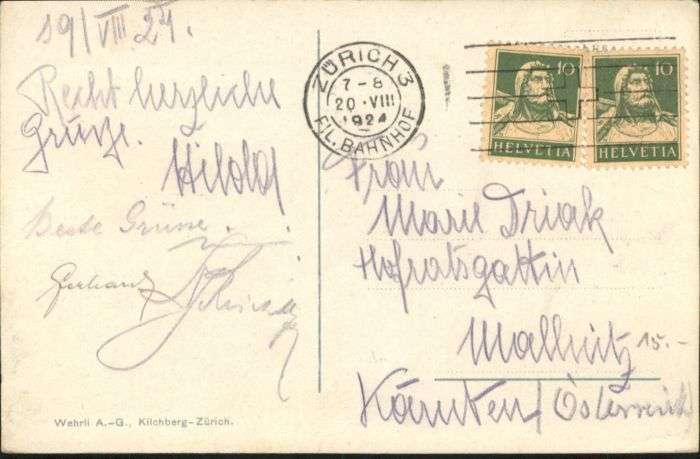 19/VIII.24.
Recht herzliche
Grüße.
Hilda
Beste Grüsse.
Gerhard
Wehrli A.-G., Kilchberg-Zürich.
ZÜRICH 3
7-8
20.VIII
1924
FIL. BAHNHOF
10
HELVETIA
10
HELVETIA
Frau
Marie Driak
Hofratsgattin
Mallnitz
15.-
Kärnten/Österreich